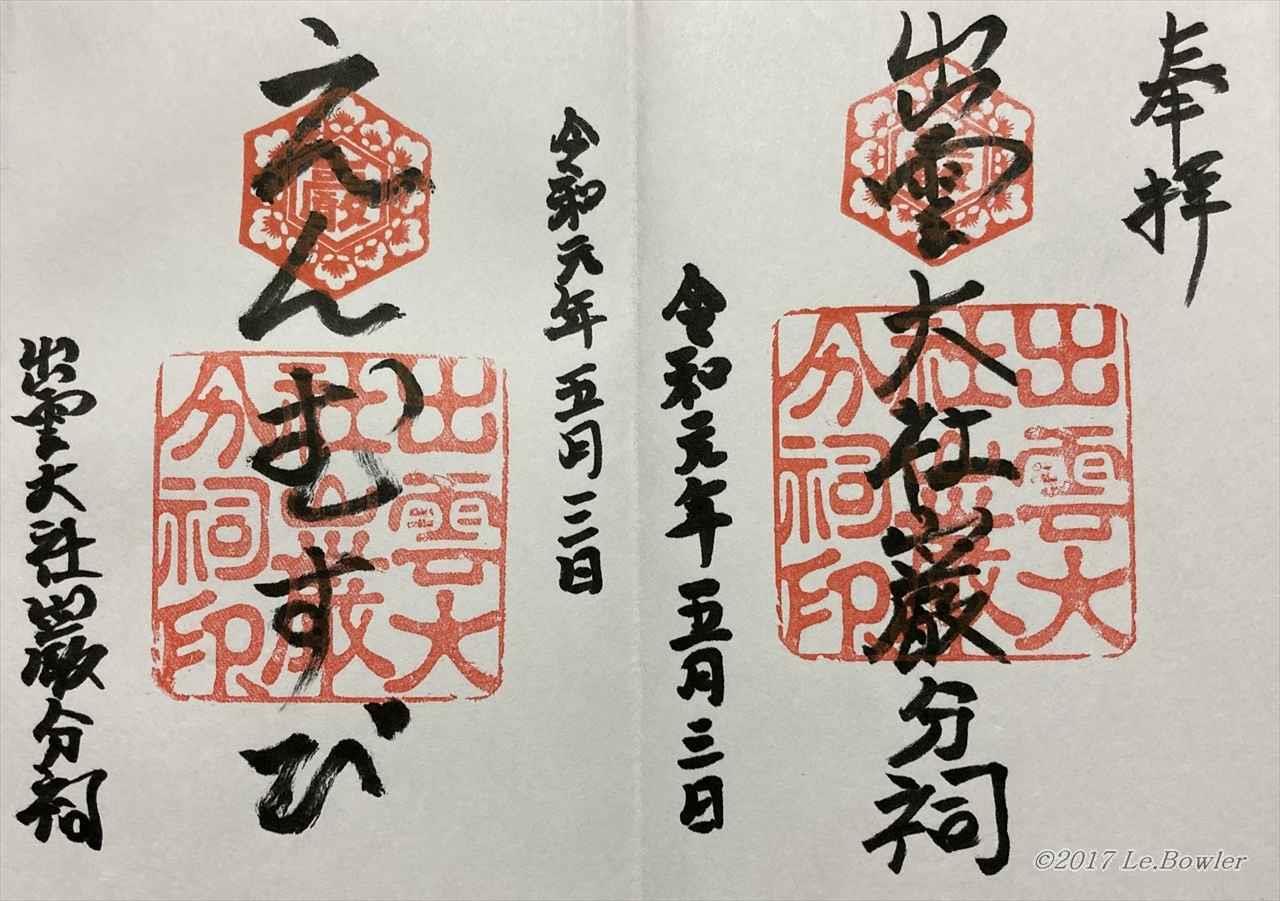 奉拝
出雲大社巌分祠
令和元年五月三日
令和元年五月三日
えんむすび
出雲大社巌分祠
出雲大
社巌
分祠印
出雲大
社巌
分祠印
©2017 Le.Bowler